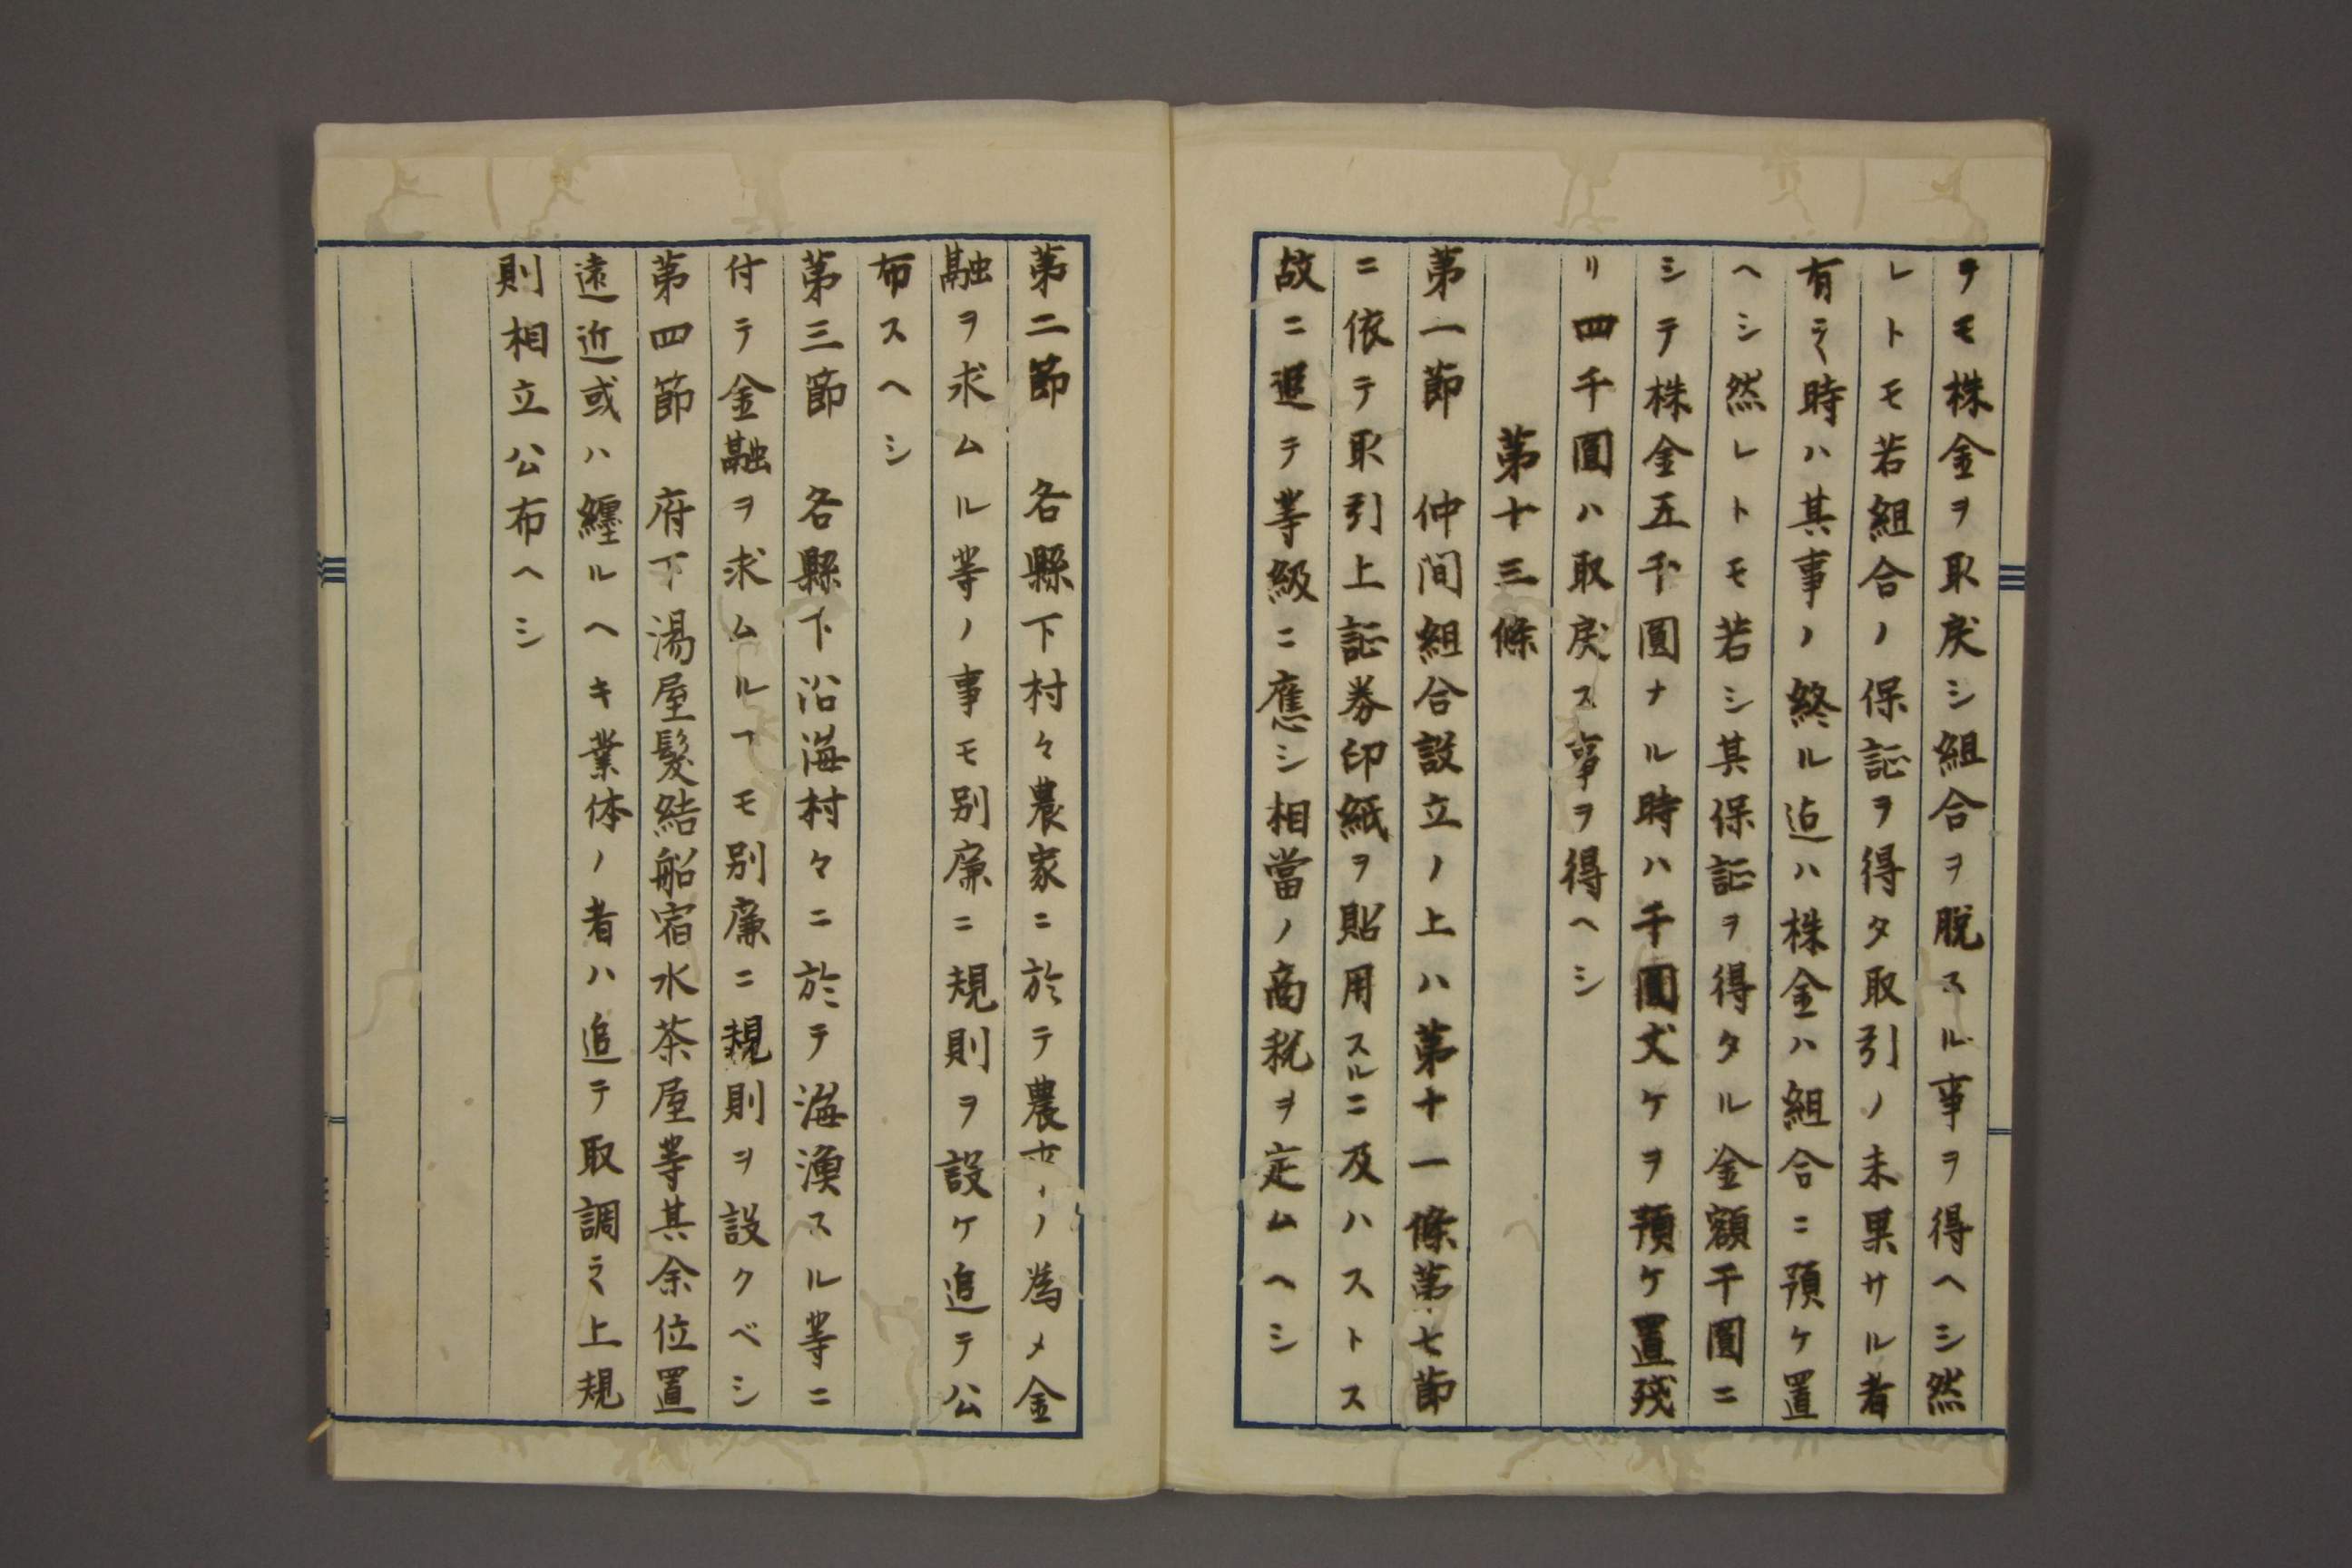 ヲモ株金ヲ取戻シ組合ヲ脱スル事ヲ得ヘシ然
レトモ若組合ノ保証ヲ得タ取引ノ未果サル者
有ラハ時ハ其事ノ終ル迄ハ株金ハ組合ニ預ケ置
ヘシ然レトモ若シ其保証ヲ得タル金額千圓ニ
シテ株金五千圓ナル時ハ千圓丈ケヲ預ケ置残
リ四千圓ハ取戻ス事ヲ得ヘシ
第十三條
第一節 仲間組合設立ノ上ハ第十一條第七節
ニ依テ取引上証券印紙ヲ貼用スルニ及ハストス
故ニ追テ等級ニ應シ相當ノ商税ヲ定ムヘシ
第二節 各縣下村々農家ニ於テ農ノ為メ金
融ヲ求ムル等ノ事モ別廉ニ規則ヲ設ケ追テ公
布スヘシ
第三節 各縣下沿海村々ニ於テ海漁スル等ニ
付テ金融ヲ求ムルヿモ別廉ニ規則ヲ設クベシ
第四節 府下湯屋髪結船宿水茶屋等其余位置
遠近或ハ纏ルヘキ業体ノ者ハ追テ取調之上規
則相立公布ヘシ